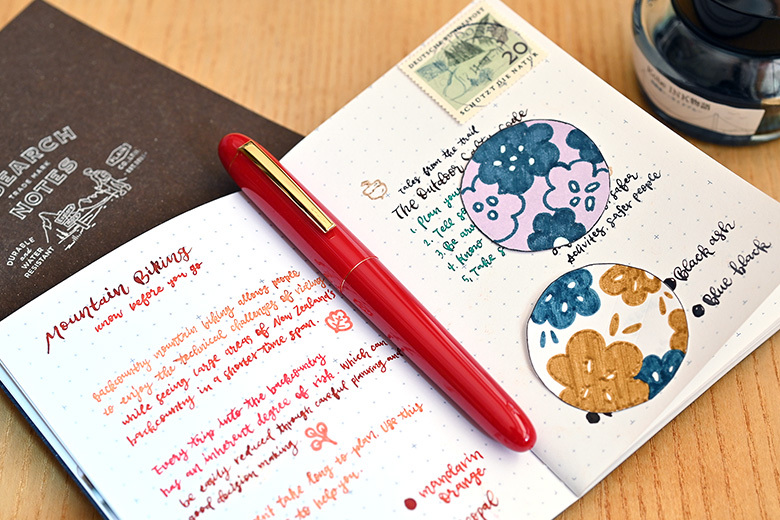 SEARCH
TRADE MARK
NOTES
DURABLE
and
WATER
RESISTANT
Mountain Biking
know before you go
backcountry mountain biking allows people
to enjoy the technical challenges of riding
while seeing large areas of New Zealand's
backcountry in a shorter time span.
Every trip into the backcountry
has an inherent degree of risk. Which can
be easily reduced through careful planning and
good decision making
take long to plan. Use this
to help you.
mandarin
orange
opal
DEUTSCHE BUNDESPOST
20
SCHÜTZT DIE NATUR
tales from the trail
The Outdoor Code
1. Plan your
2. Tell
3. Be
4. Know
5. Take
safer
activities, safer people
black ash
blue black
Kobe INK物語